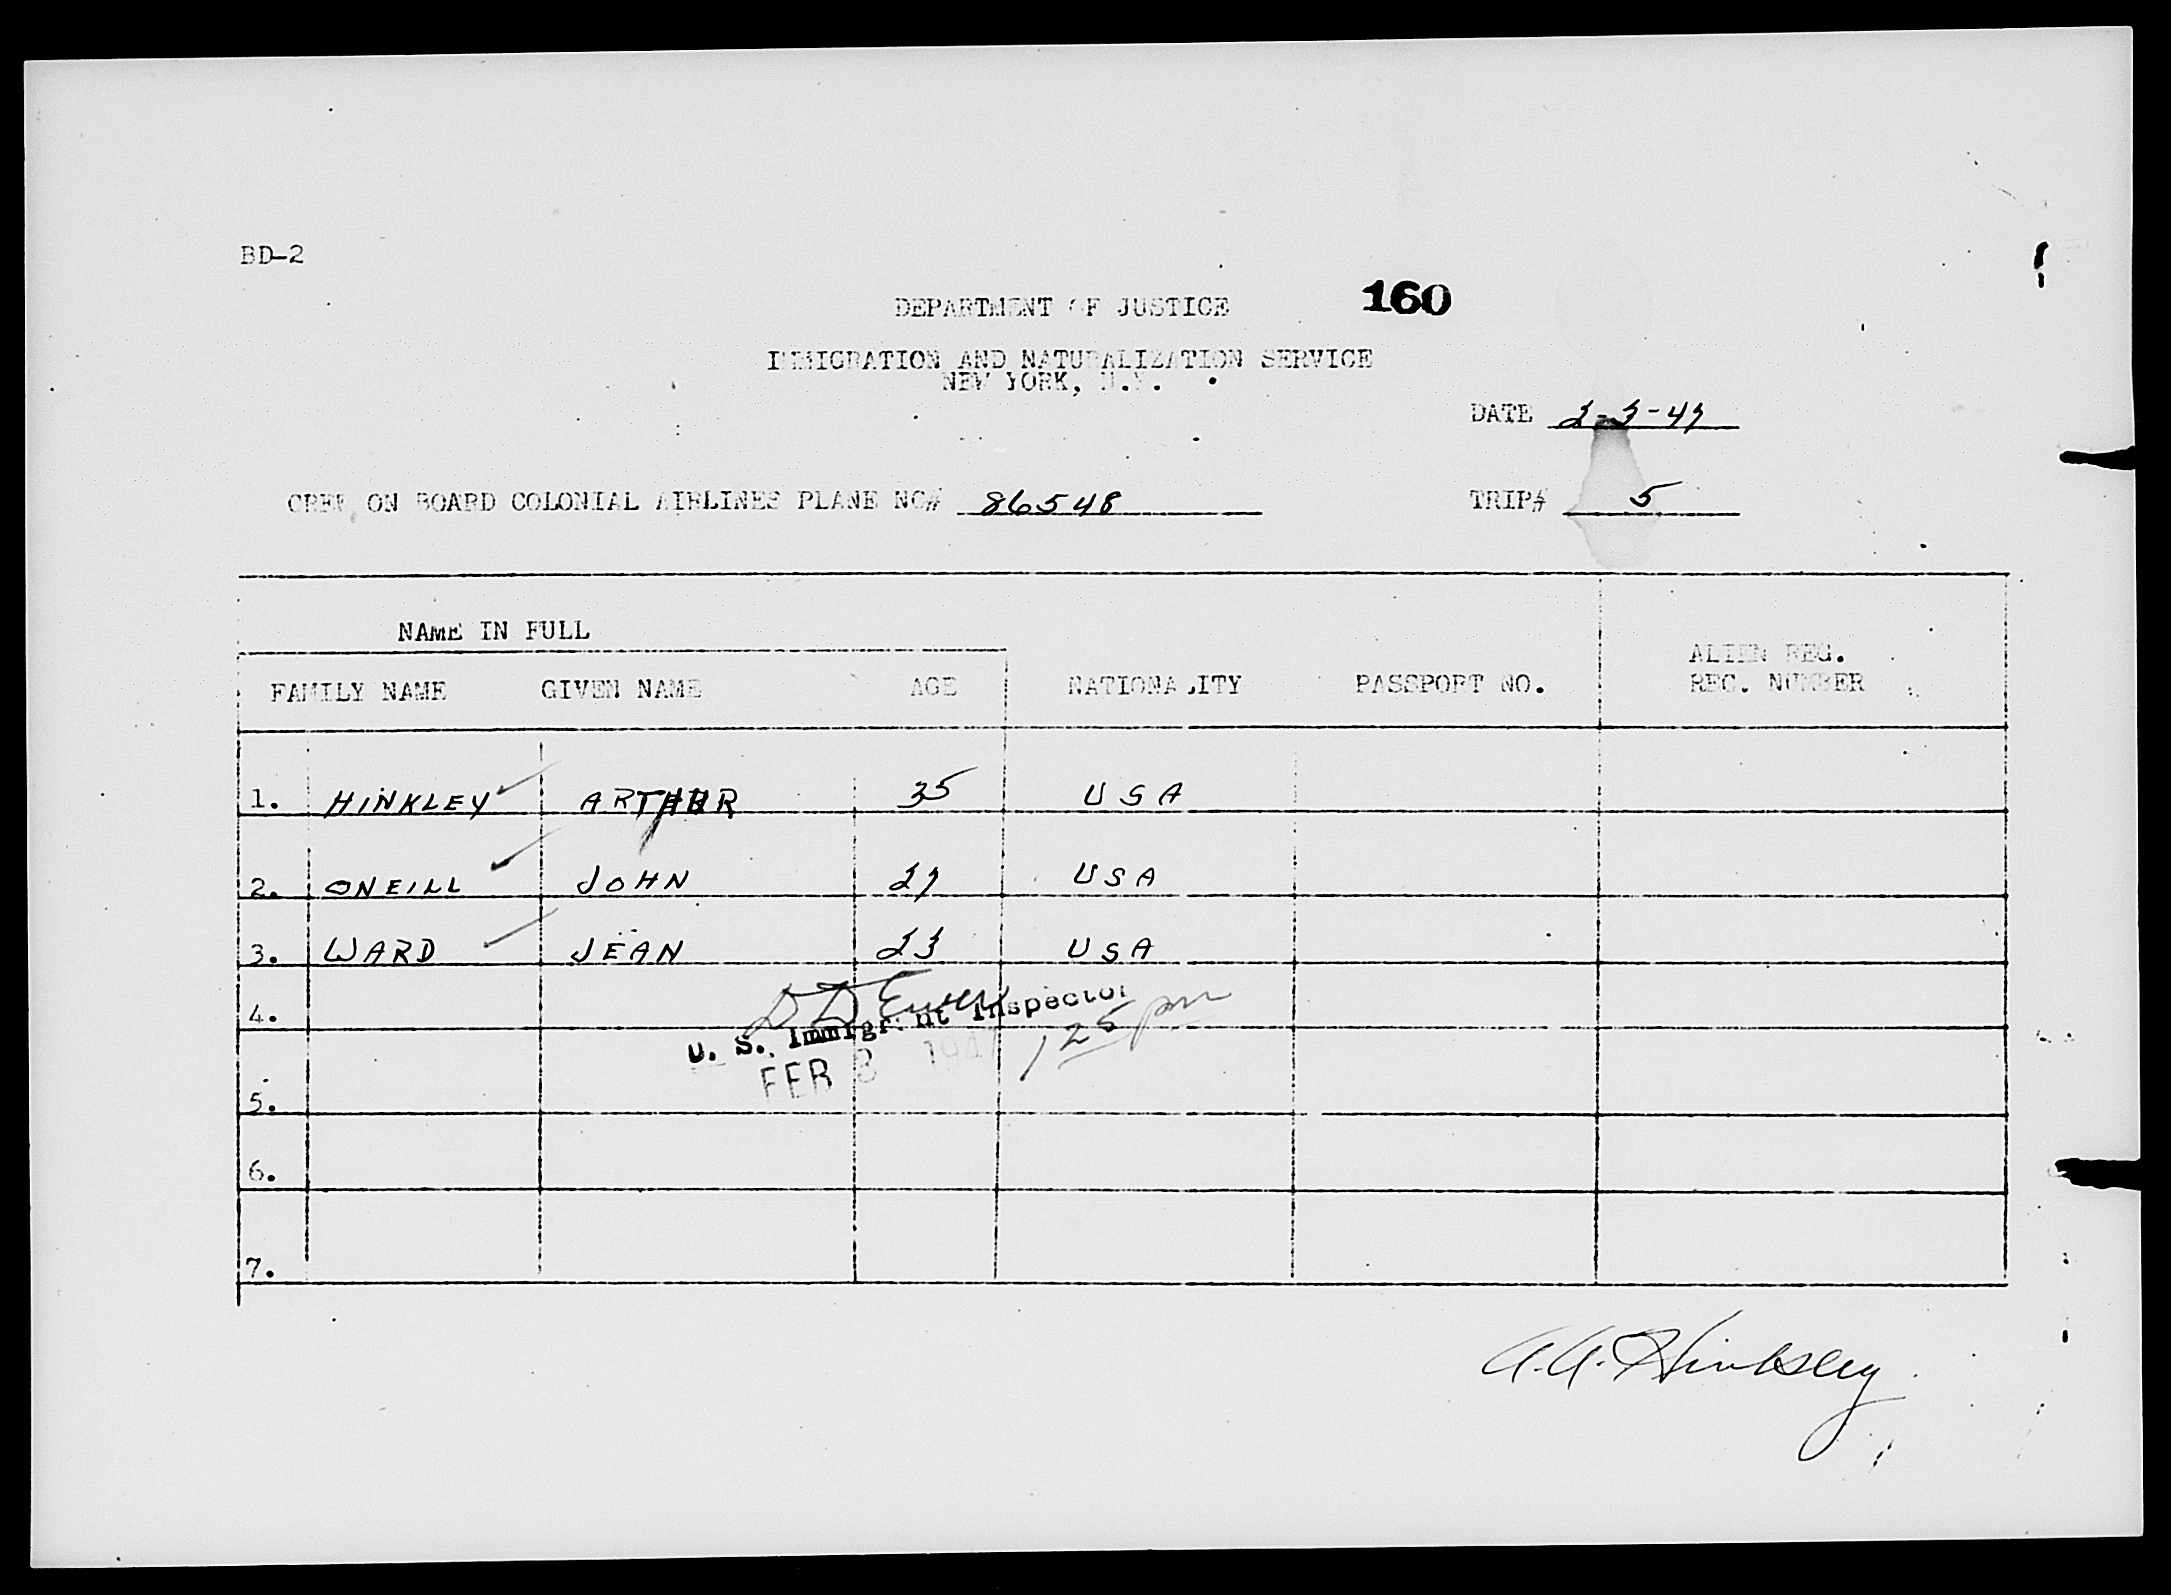 BD-2
DEPARTMENT OF JUSTICE 160
IMMIGRATION AND NATURALIZATION SERVICE
NEW YORK, N.Y.
DATE 2-3-47
CREW ON BOARD COLONIAL AIRLINES PLANE NO# 86548 TRIP# 5
NAME IN FULL
FAMILY NAME GIVEN NAME AGE NATIONALITY PASSPORT NO. ALIEN REG.
REG. NUMBER
1. HINKLEY ARTHUR 35 USA
2. ONEILL JOHN 27 USA
3. WARD JEAN 23 USA
4.
D D
U. S. Immigrant Inspector
FEB 3 1947 1 25 pm
5.
6.
7.
A.A. Hinkley